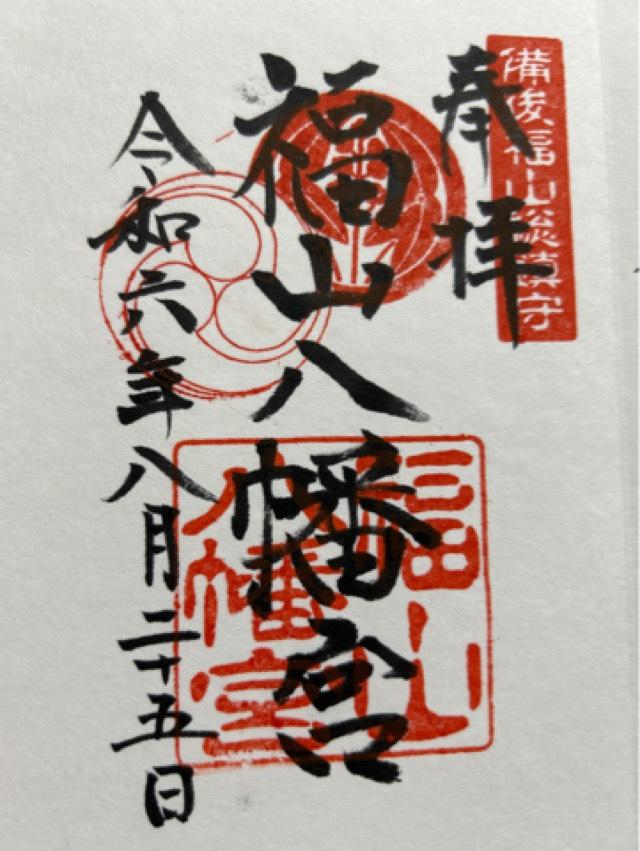 備後福山総鎮守
奉拝
福山八幡宮
福山
八幡宮
令和六年八月二十五日